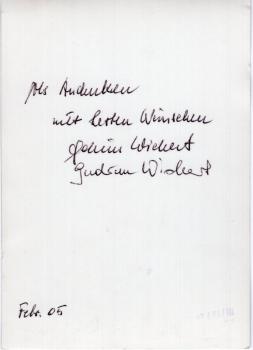 Als Andenken
mit besten Wünschen
Wichert
Gudrun Wichert
Febr. 05